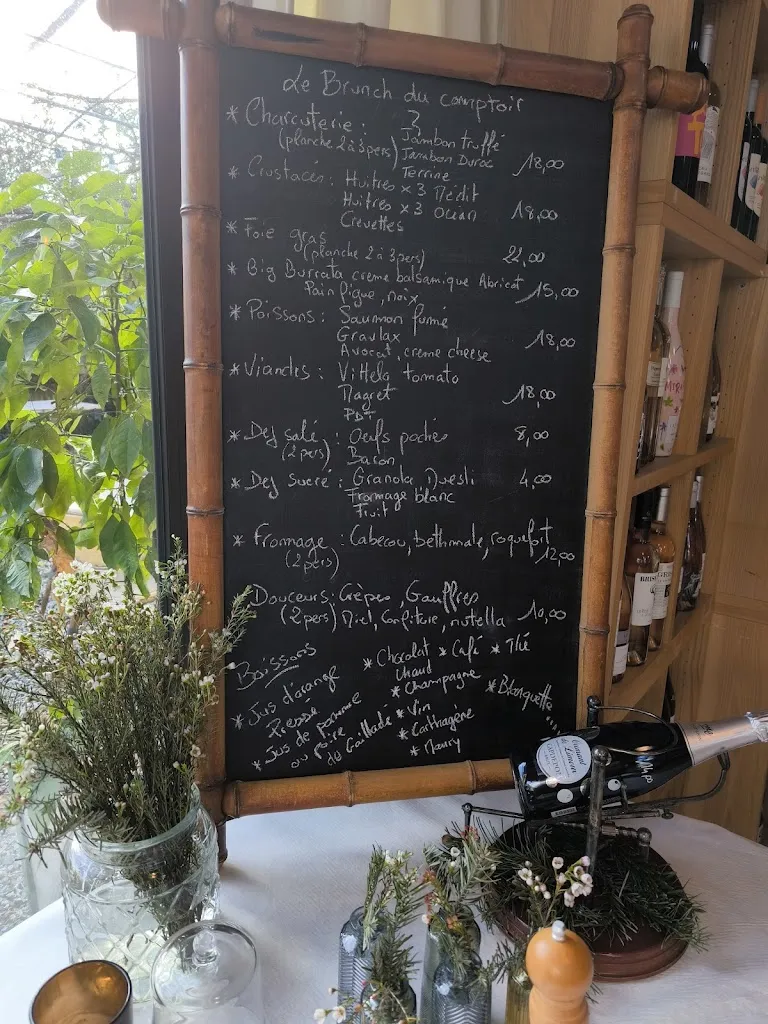 Le Brunch du comptoir
* Charcuterie : Jambon truffé
(planche 2 à 3 pers) Jambon Duroc 18,00
Terrine
* Crustacés : Huîtres x 3 Médit
Huîtres x 3 Océan 18,00
Crevettes
* Foie gras
(planche 2 à 3 pers) 22,00
* Big Burrata creme balsamique Abricot
Pain figue, noix 15,00
* Poissons : Saumon fumé
Gravlax 18,00
Avocat, creme cheese
* Viandes : Vittelo tomato
Magret 18,00
PDT
* Dej salé : Oeufs pochés 8,00
(2 pers) Bacon
* Dej sucré : Granola, Muesli 4,00
Fromage blanc
Fruit
* Fromage : Cabecou, bethmale, roquefort
(2 pers) 12,00
Douceurs : Crêpes, Gauffres
(2 pers) Miel, Confiture, nutella 10,00
Boissons
* Jus d'orange
Pressé
* Jus de pomme
ou poire
du Gailladé
* Chocolat
chaud
* Café * Thé
* Champagne
* Vin
* Carthagène
* Maury
* Blanquette